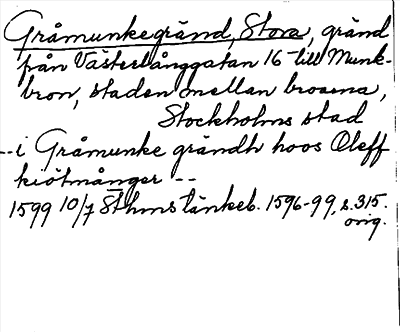 Gråmunkegränd, Stora, gränd
från Västerlånggatan 16 till Munk-
bron, staden mellan broarna,
Stockholms stad
--i Gråmunke grändh hoos Oleff
kiötmånger --
1599 10/7 Sthms tänkeb. 1596-99, s. 315.
orig.